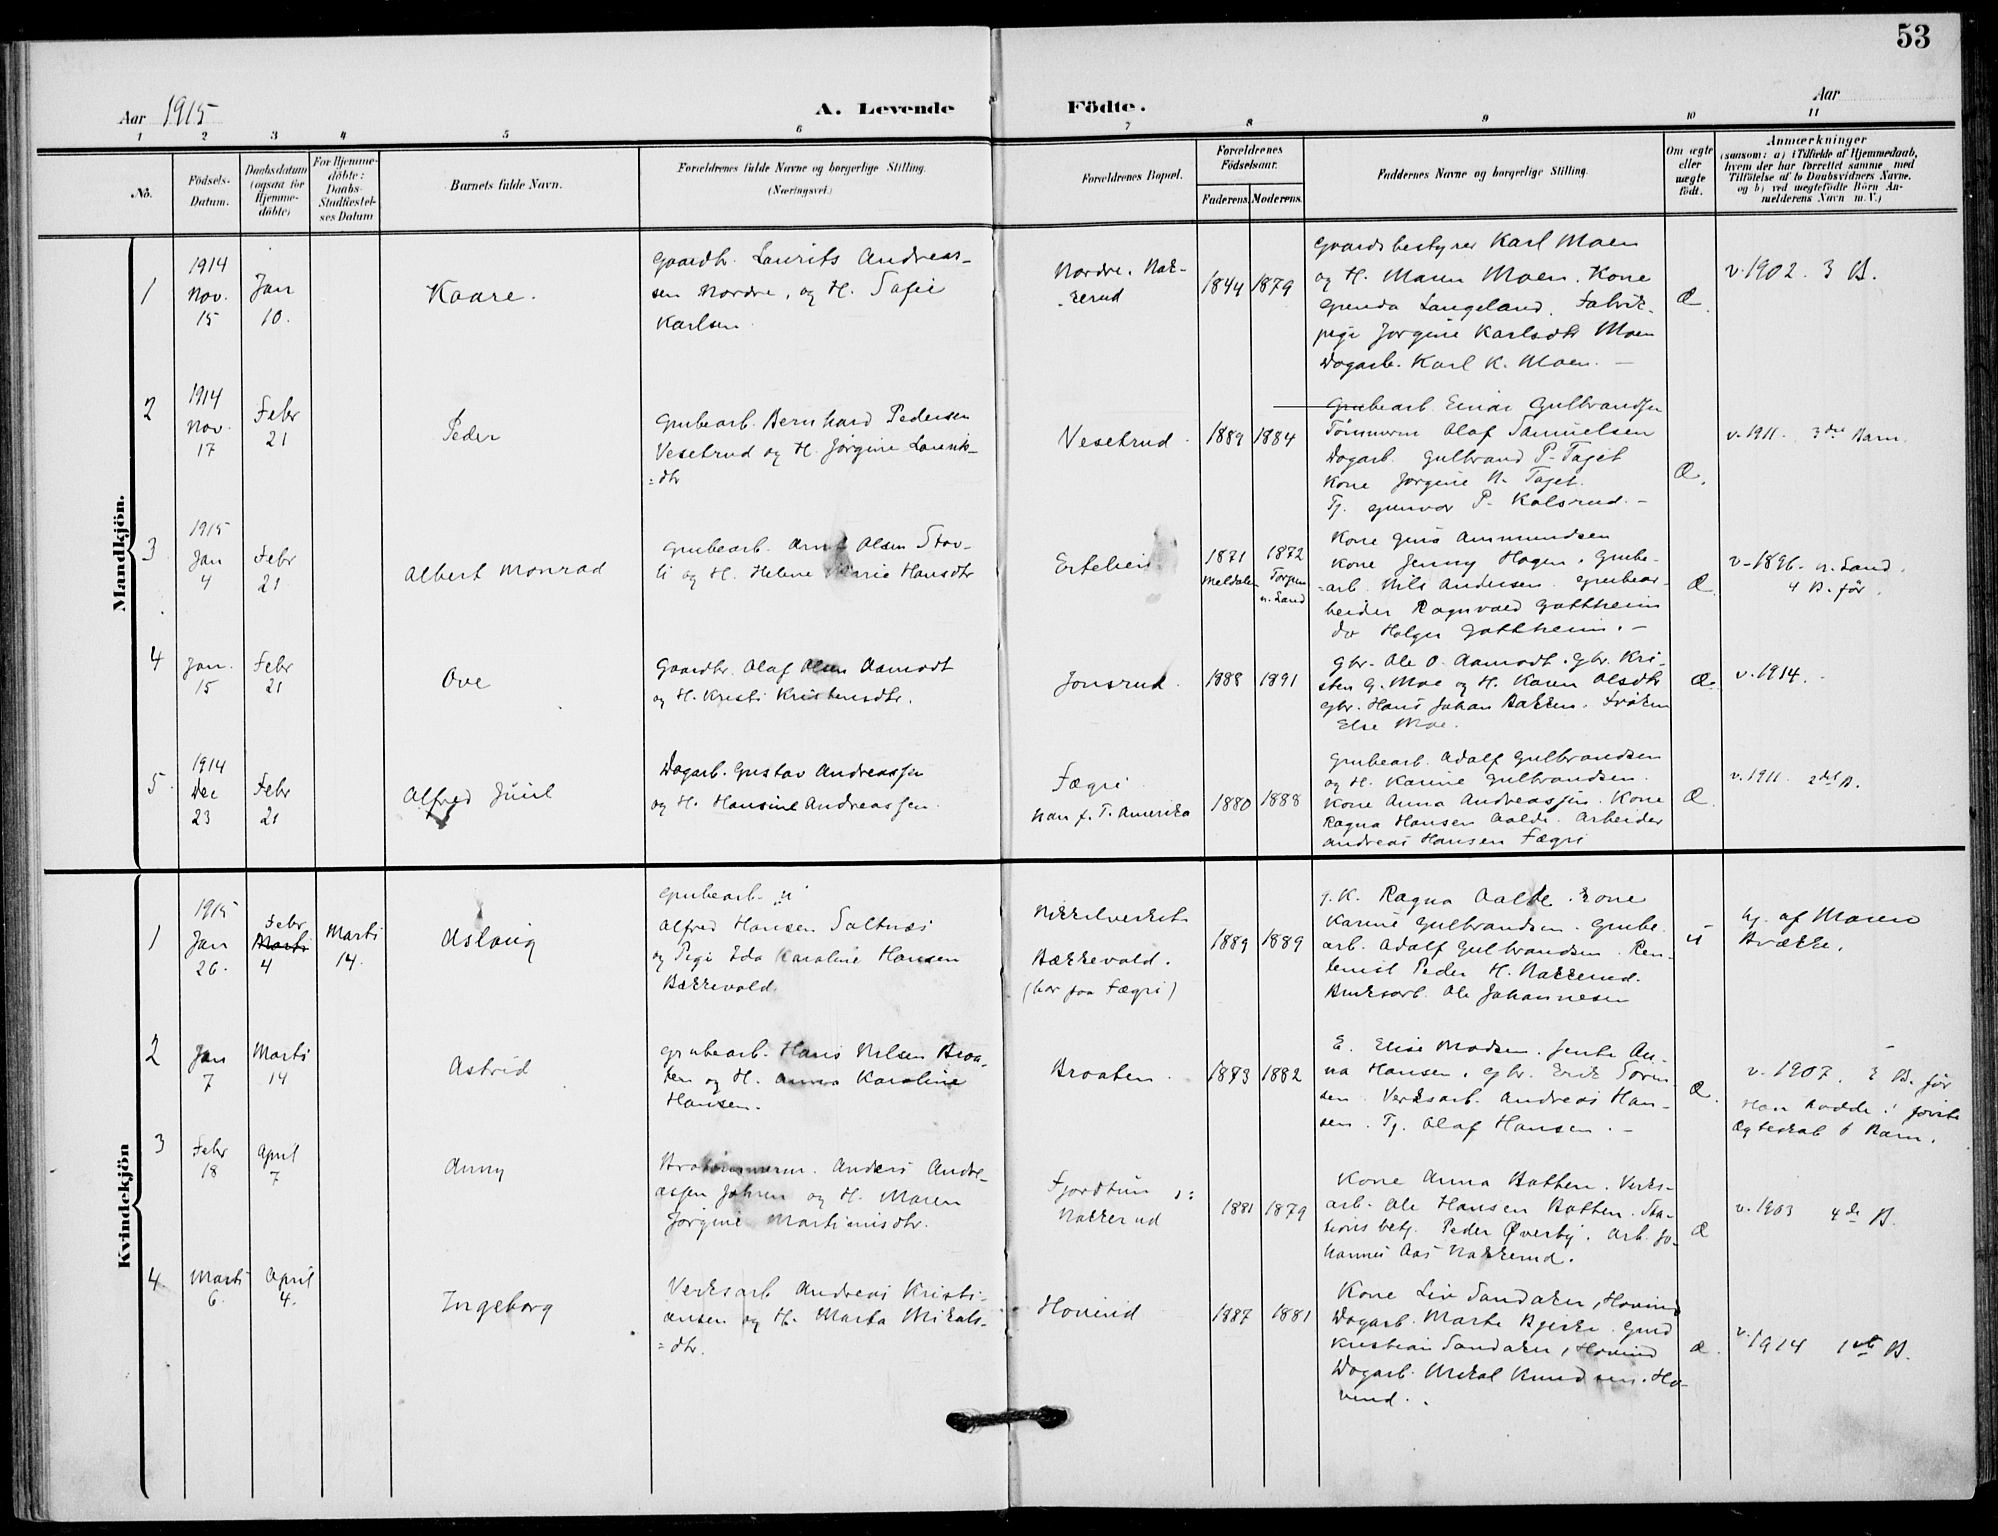 53
Aar 1915
A. Levende
Födte.
Aar
1 2 3 4 5 6 7 8 9 10 11
No.
Födsels-
Datum.
Daabsdatum
(ogsaa for
Hjemme-
döbte)
For Hjemme-
döbte:
Daabs-
Stadfæstel-
ses Datum
Barnets fulde Navn.
Forældrenes fulde Navne og borgerlige Stilling.
(Næringsvei.)
Forældrenes Bopæl.
Forældrenes
Födselsaar.
Faderens. Moderens.
Faddernes Navne og borgerlige Stilling.
Om ægte
eller
uægte
født.
Anmærkninger
(saasom: a) i Tilfælde af Hjemmedaab,
hvem der har forrettet samme, med
Tilføielse af to Daabsvidners Navne,
og b) ved uægtefödte Börn An-
melderens Navn m. V.)
Mandkjön.
1
1914
Nov.
15
Jan
10.
Kaare.
Gaardbr. Laurits Andreas-
sen Nordre, og H. Sofie
Karlsen.
Nordre. Nak-
kerud
1844 1879
Gaardsbestyrer Karl Moen
og H. Maren Moen. Kone
Gunda Langeland. Fabrik-
pige Jørgine Karlsdtr Moen
Dagarb. Karl K. Moen. –
Æ.
v. 1902. 3 B.
2
1914
Nov.
17
Febr
21
Peder
Grubearb. Bernhard Pedersen
Vesetrud og H. Jørgine Laurits-
=dtr
Vesetrud.
1889 1884
Grubearb. Einar Gulbrandsen
Tømmerm Olaf Samuelsen
Dagarb. Gulbrand P. Taget
Kone Jørgine N. Taget.
Tj. Gunvor P. Kolsrud. –
Æ.
v. 1911. 3die Barn.
3
1915
Jan
4
Febr
21
Albert Monrad
Grubearb. Arnt Olsen Stov-
li og H. Helene Marie Hansdtr
Ertelien
1871
Meldalen
1872
Torpen
n. Land
Kone Gina Ammundsen
Kone Jenny Hagen. Grube-
=arb. Nils Andersen. Grubear-
beider Ragnvald Gottheim
do Holger Gottheim. –
Æ.
v. 1896. n. Land.
4 B. før.
4
Jan.
15
Febr
21
Ove
Gaardbr. Olaf Olsen Aamodt
og H. Kristi Kristensdtr.
Jonsrud.
1888 1891
Gbr. Ole O. Aamodt. Gbr. Kri-
sten G. Moe og H. Karen Olsdtr
Gbr. Hans Johan Bakken. Frøken
Else Moe.
Æ.
v. 1914. –
5
1914
Dec
23
Febr
21
Alfred Juul
Dagarb. Gustav Andreassen
og H. Hansine Andreassen.
Fægri
han f. i Amerika
1880 1888
Grubearb. Adolf Gulbrandsen
og H. Karine Gulbrandsen.
Kone Anna Andreassen. Kone
Ragna Hansen Aalde. Arbeider
Andreas Hansen Fægri
Æ.
v. 1911. 2det B.
Kvindekjön
1
1915
Jan
26.
Febr
Marts
4
Marts
14.
Aslaug
Grubearb.
Alfred Hansen Saltnæs
og Pige Ida Karoline Hansen
Bækkevold.
Nikkelverket
Bækkevold.
(bor paa Fægri)
1889 1889
g. K. Ragna Aalde. Kone
Karine Gulbrandsen. Grube-
arb. Adolf Gulbrandsen. Ren-
tenist Peder H. Nakkerud.
Bruksarb. Ole Johannesen
u
hj. af Maren
Brække.
2
Jan
7
Marts
14
Astrid
Grubearb. Hans Nilsen Braa-
ten og H. Anna Karoline
Hansen.
Braaten.
1873 1882
E. Elise Madsen. Jente An-
na Hansen. Gbr. Erik Soren-
sen. Verksarb. Andreas Han-
sen. Tj. Olaf Hansen. –
Æ.
v. 1907. 2 B. før
Han hadde i første
Ægteskab 6 Barn.
3
Febr
18
April
7
Anny
Brotømmerm. Anders Andre-
assen Jahren og H. Maren
Jørgine Martinusdtr.
Fjordtun
Nakkerud
1881 1879
Kone Anna Batten. Verks-
arb. Ole Hansen Batten. Sta-
tionsbetj. Peder Øverby. Arb. Jo-
hannes Aas Nakkerud.
Æ
v. 1903 4de B.
4
Marts
6.
April
4.
Ingeborg
Verksarb Andreas Kristi-
ansen og H. Marta Mikals-
=dtr.
Hovind
1887 1881
Kone Liv Sandaker, Hovind
Dagarb. Marte Bjerke. Gmd
Kristian Sandaker, Hovind
Dagarb. Mikal Knudsen. Ho-
vind.
Æ.
v. 1914 1ste B.